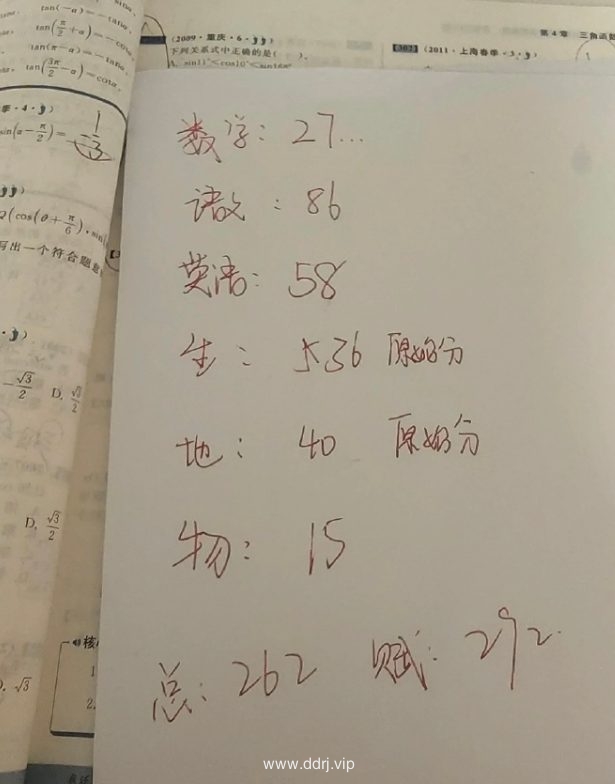 tan(-α)=-tanα
tan(π/2+α)=-cotα
tan(π-α)=-tanα
tan(3π/2-α)=cotα
(2009·重庆·6·
下列关系式中正确的是(
A. sin11°<cos10°<sin168°
【302】(2011·上海春季·3·
第4章 三角函数
季·4·
sin(α-π/2)=
1/3
(cos(θ+π/6),sin
写出一个符合题意
-√3/2 D. √3/2
D. √3/2
√3
核
1
2.
数学: 27...
语文: 86
英语: 58
生: 36 原始分
地: 40 原始分
物: 15
总: 262 赋: 292.
www.ddrj.vip